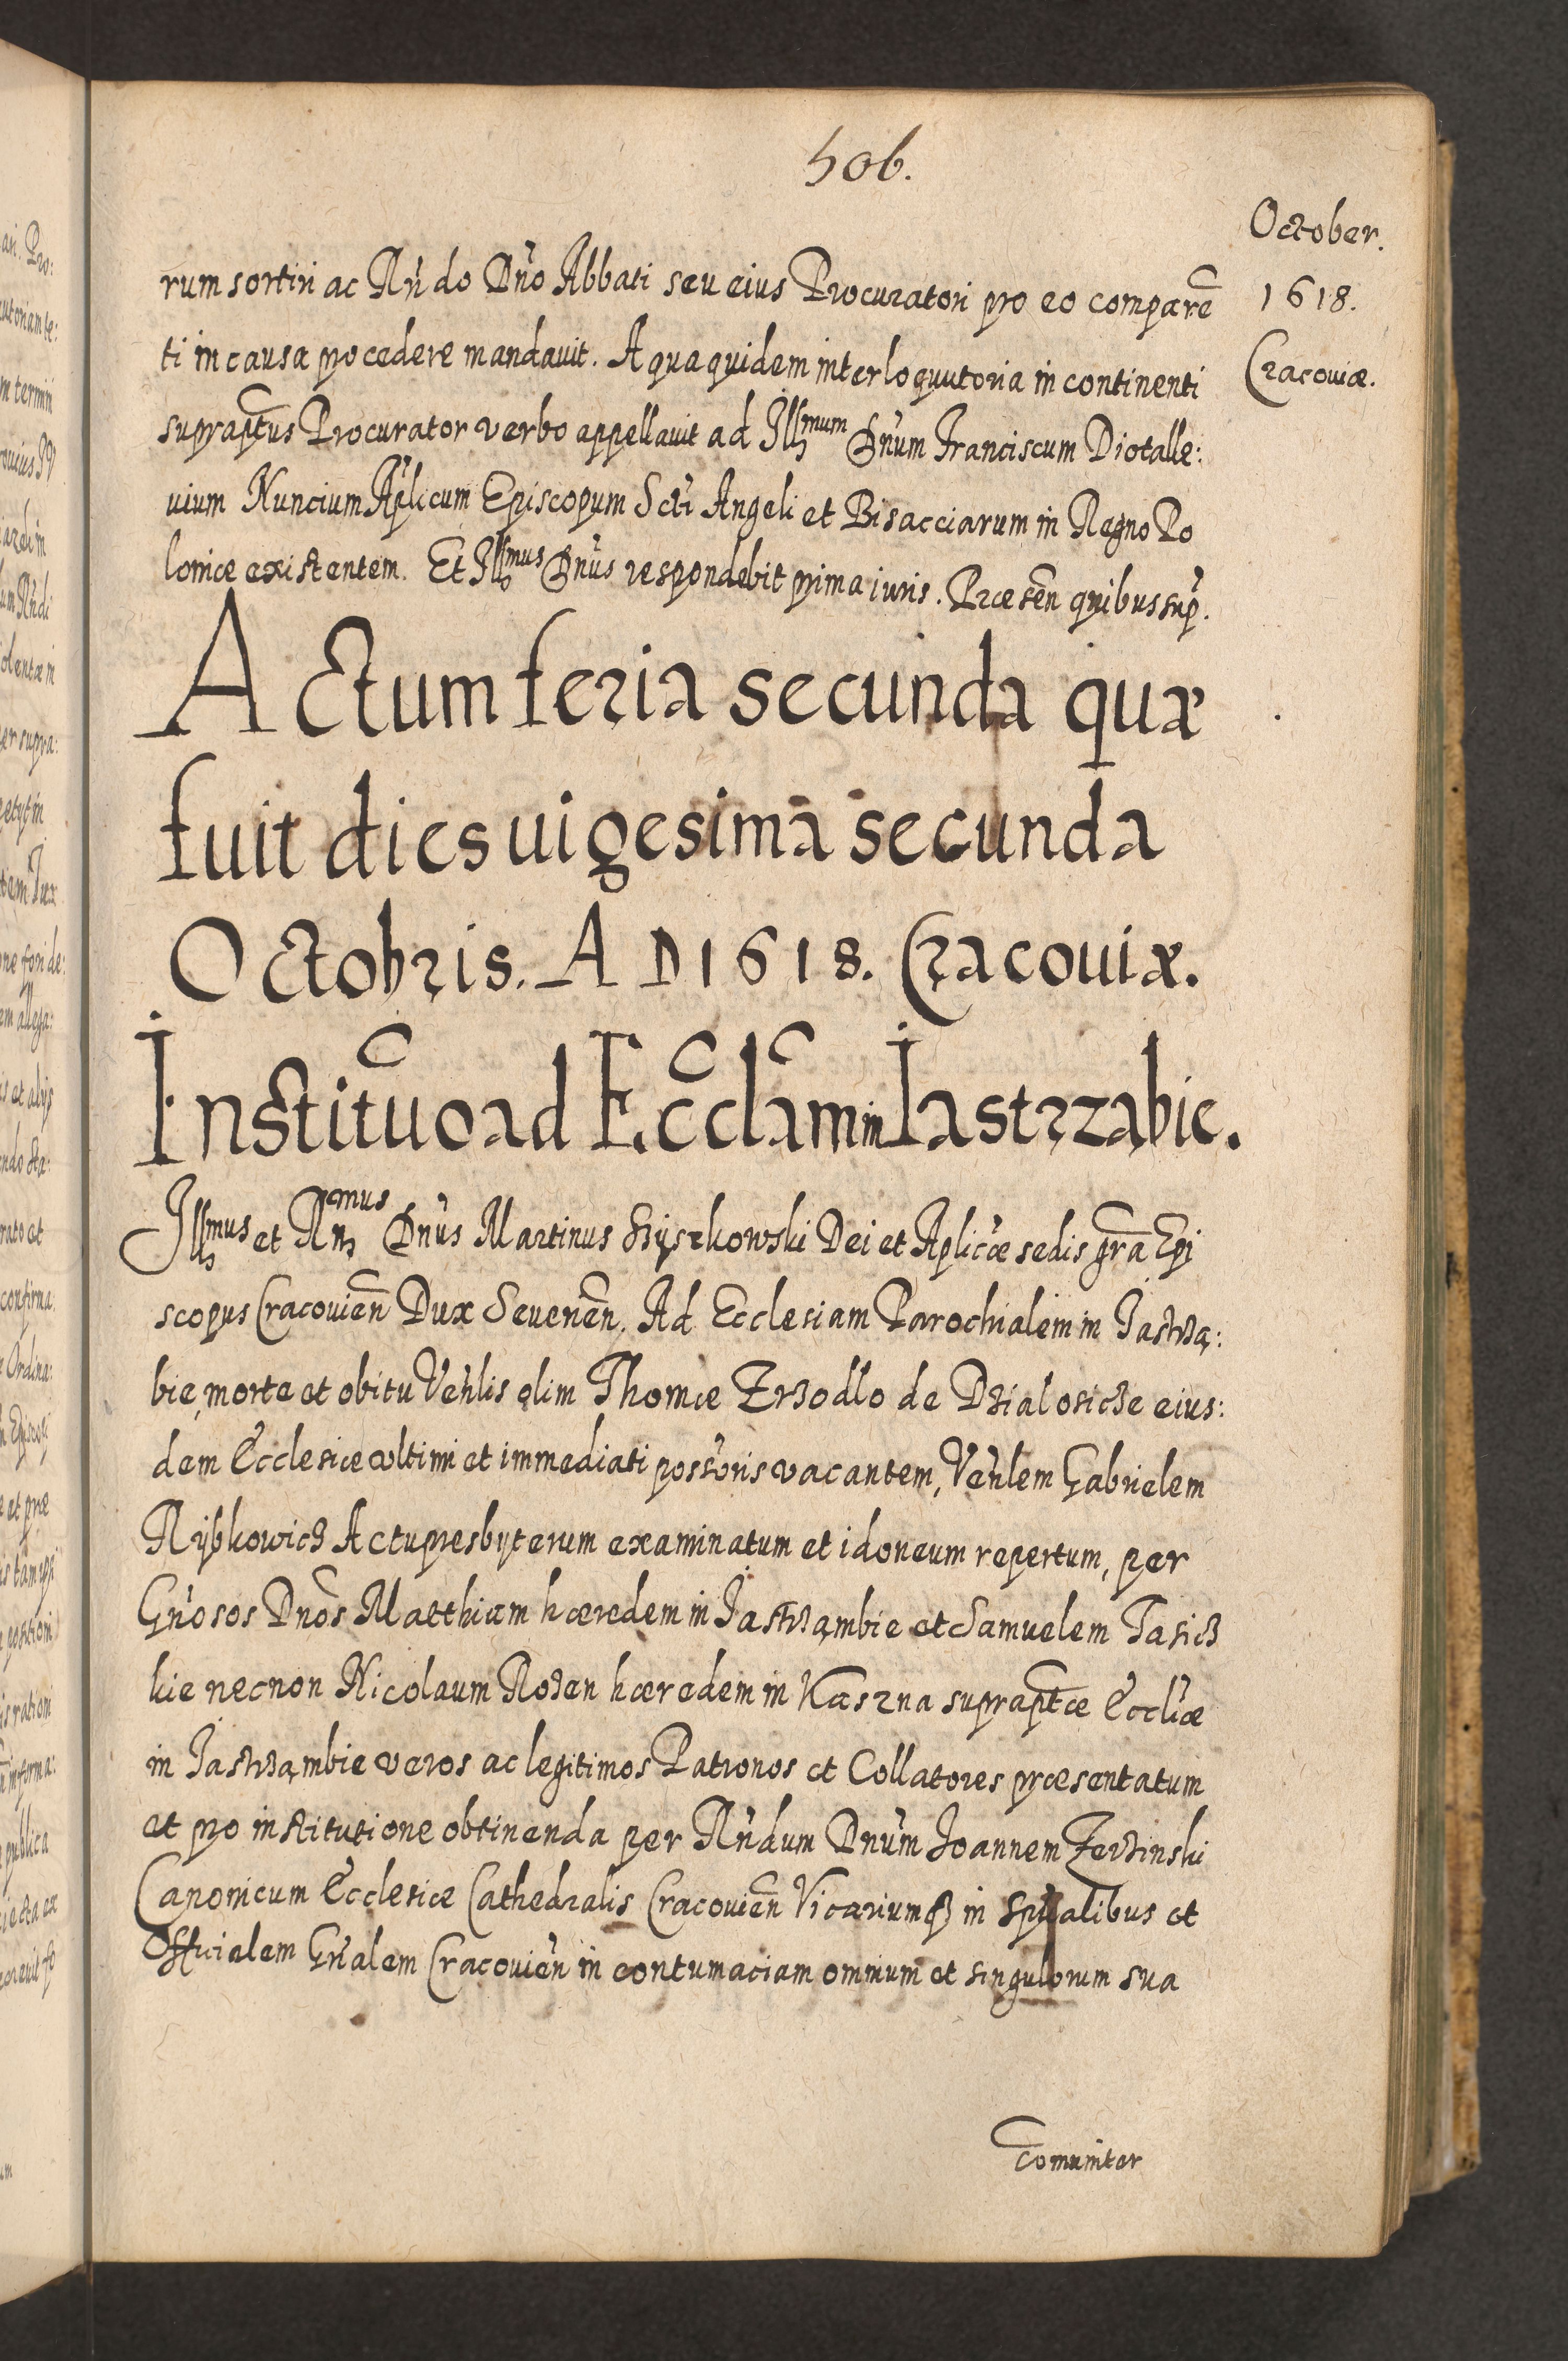 506.
October.
1618.
Cracouiæ.
rum sortiri ac Rńdo Dńo Abbati seu eius Procuratori pro eo comparẽ
ti in causa procedere mandauit. A qua quidem interloquutoria in continenti
supraptus Procurator verbo appellauit ad Illmum Dńum Franciscum Diotalle:
uium Nuncium Aplicum Episcopum Scti Angeli et Bisacciarum in Regno Po
loniæ existentem. Et Illmus Dńus respondebit prima iuris. Præsẽn quibus sup.
Actum feria secunda quæ
fuit dies uigesima secunda
Octobris. A D 1618. Cracouiæ.
Institũo ad Eccl̃am in Iastrząbie.
Illmus et Rńmus Dńus Martinus Szyszkowski Dei et Aplicæ sedis gr̃a Epi
scopus Cracouieñ Dux Seuerieñ. Ad Ecclesiam Parochialem in Jastrzą:
bie, morte et obitu Veńlis olim Thomæ Zrzodlo de Dzialosicze eius:
dem Ecclesiæ vltimi et immediati possoris vacantem, Veńlem Gabrielem
Rybkowicz Actu presbyterum examinatum et idoneum repertum, per
Gńosos Dnos Matthiam hæredem in Jastrzambie et Samuelem Jasicz
kie necnon Nicolaum Rozen hæredem in Kaszna supraptæ Eccliæ
in Jastrzambie veros ac legitimos Patronos et Collatores præsentatum
et pro institutione obtinenda per Rńdum Dnum Joannem Zerzinski
Canonicum Ecclesiæ Cathedralis Cracouieñ Vicariumqz in Spũalibus et
Officialem Gńalem Cracouień in contumaciam omnium et singulorum sua
com̃uniter